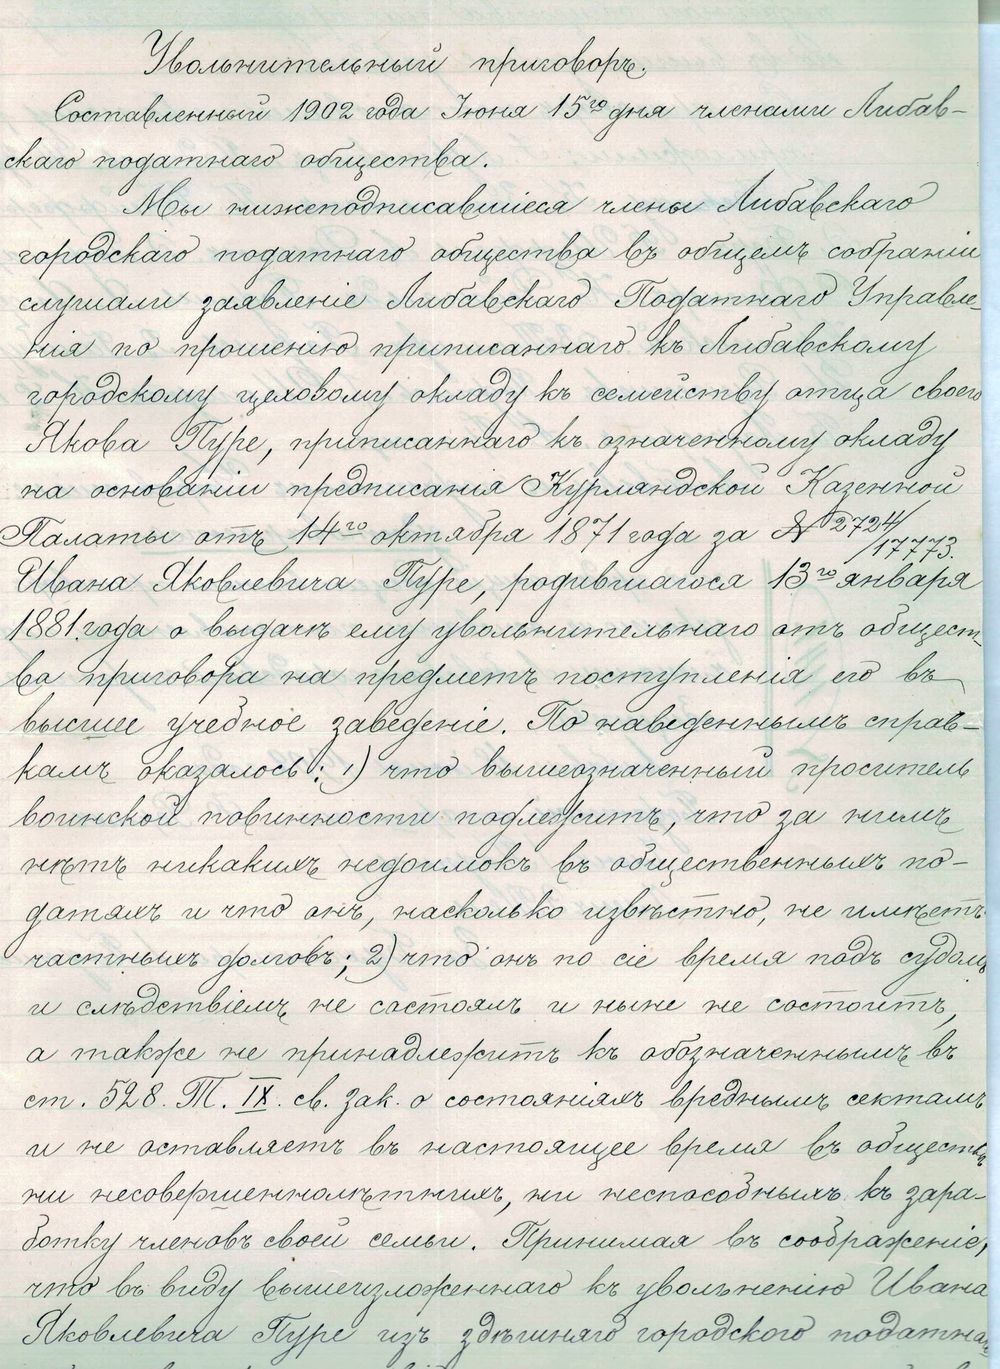 Увольнительный приговоръ.
Составленный 1902 года Іюня 15го дня членами Либав-
скаго податнаго общества.
Мы нижеподписавшіеся члены Либавскаго
городскаго податнаго общества въ общемъ собраніи
слушали заявленіе Либавскаго Податнаго Управле-
нія по прошенію приписаннаго къ Либавскому
городскому цеховому окладу къ семейству отца своего
Якова Пуре, приписаннаго къ означенному окладу
на основаніи предписанія Курляндской Казенной
Палаты отъ 14го октября 1871 года за № 2724/
/17773.
Ивана Яковлевича Пуре, родившагося 13го января
1881. года о выдачѣ ему увольнительнаго отъ общест-
ва приговора на предметъ поступленія его въ
высшее учебное заведеніе. По наведеннымъ справ-
камъ оказалось: 1) что вышеозначенный проситель
воинской повинности подлежитъ, что за нимъ
нѣтъ никакихъ недоимокъ въ общественныхъ по-
датяхъ и что онъ, насколько извѣстно, не имѣетъ
частныхъ долговъ; 2) что онъ по сіе время подъ судомъ
и слѣдствіемъ не состоялъ и ныне не состоитъ,
а также не принадлежитъ къ обозначеннымъ въ
ст. 528. Т. IX. св. зак. о состояніяхъ вреднымъ сектамъ
и не оставляетъ въ настоящее время въ обществѣ
ни несовершеннолѣтнихъ, ни неспособныхъ къ зара-
ботку членовъ своей семьи. Принимая въ соображеніе,
что въ виду вышеизложеннаго къ увольненію Ивана
Яковлевича Пуре изъ здѣшняго городского податна-